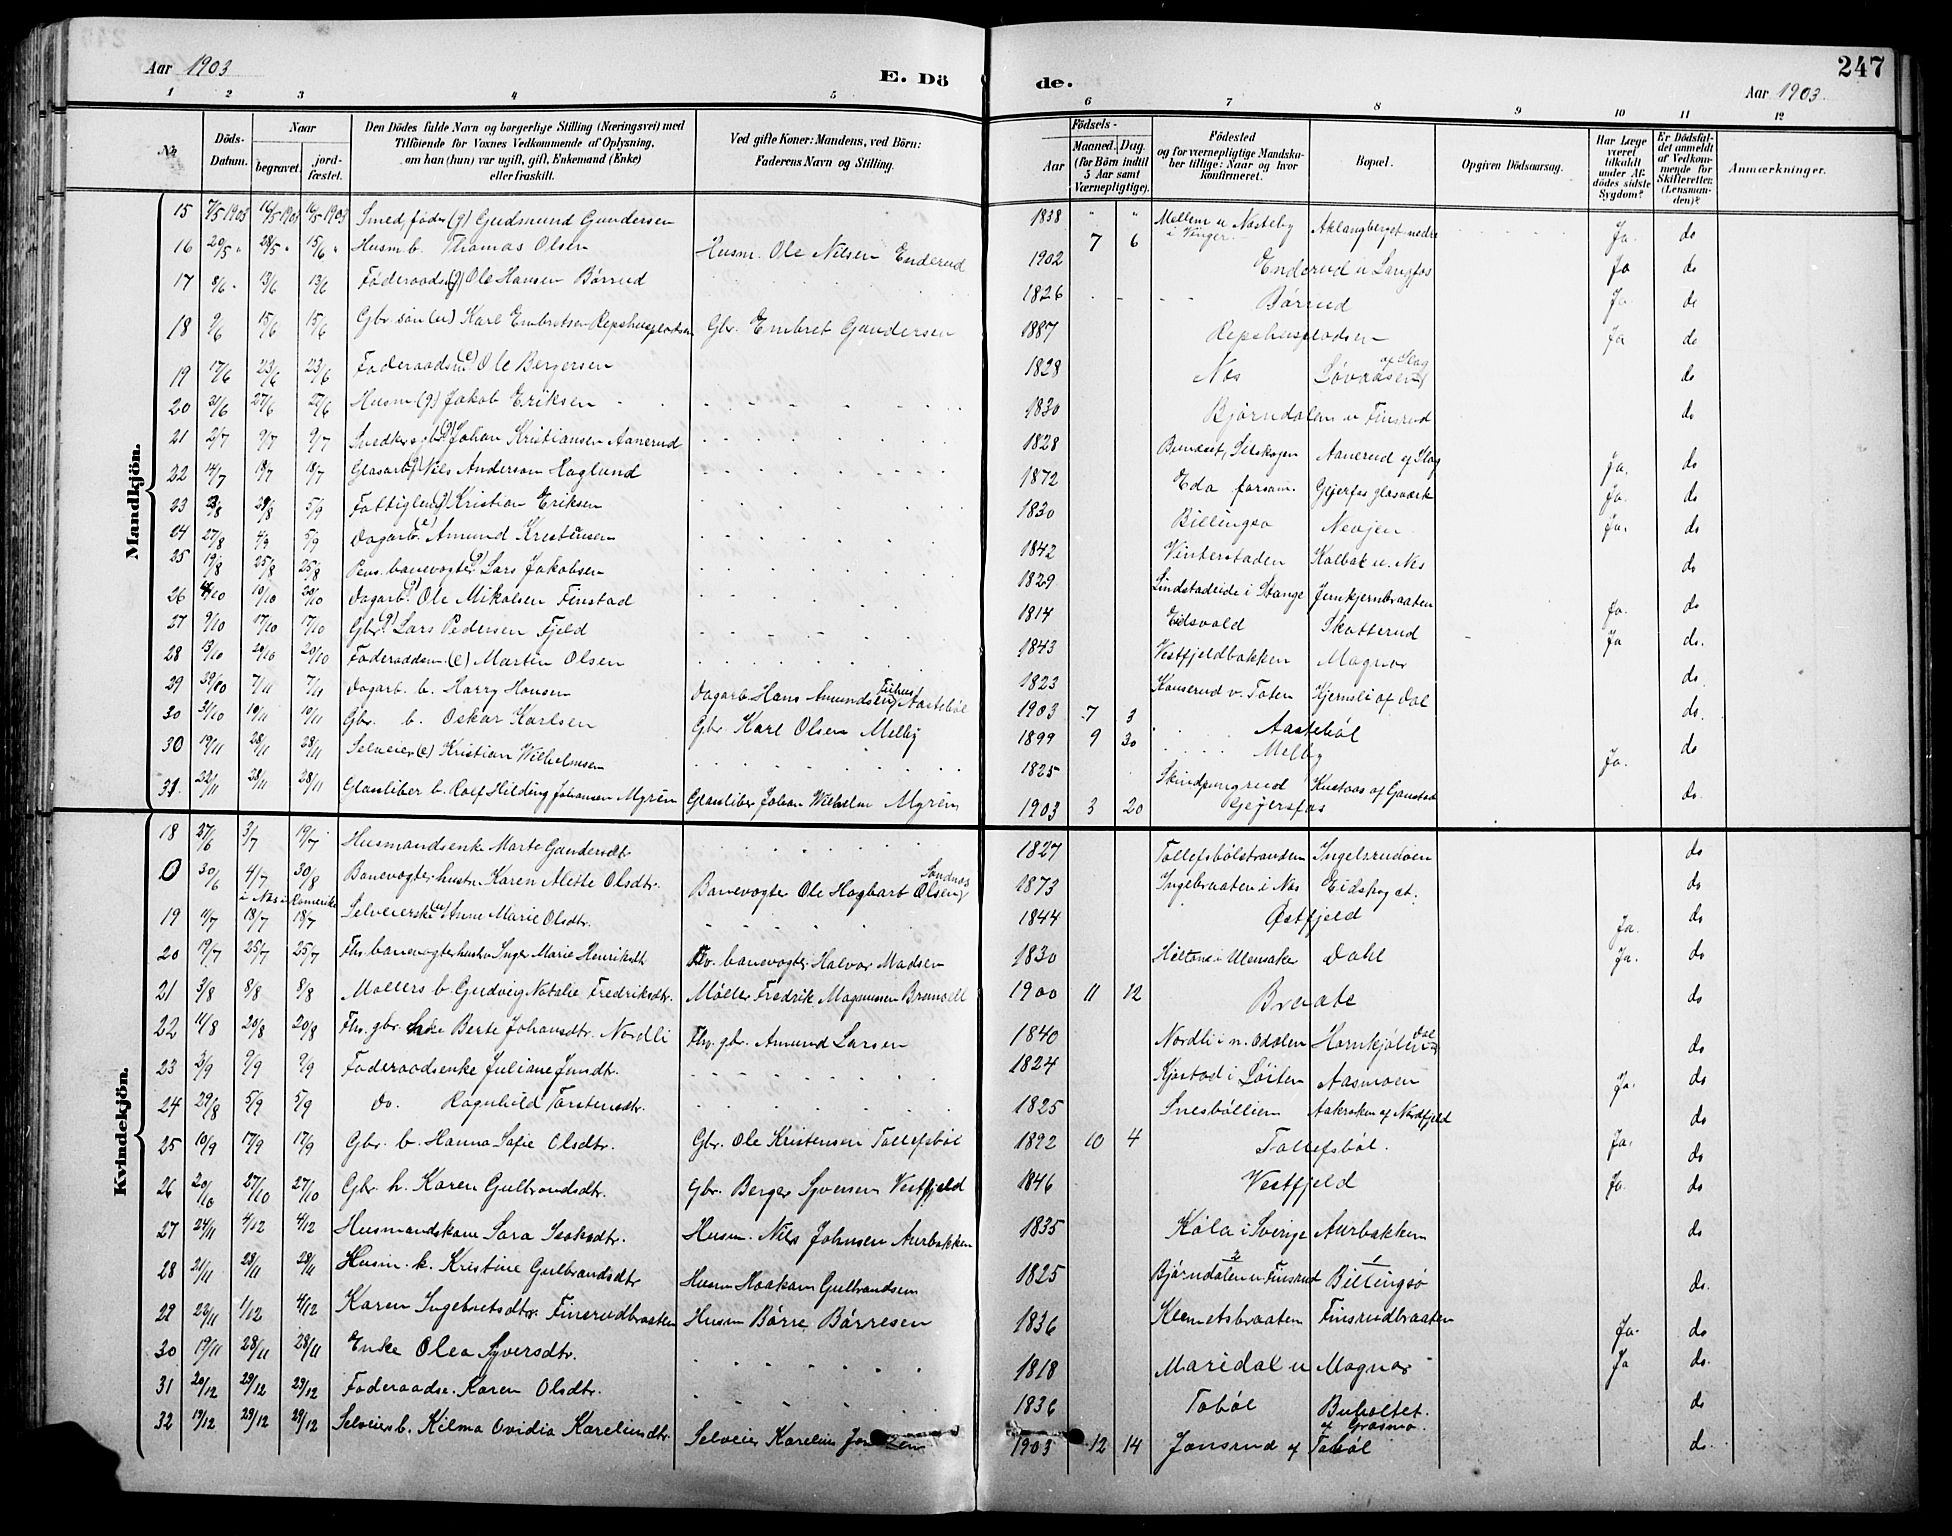 Aar 1903
E. Dö
de.
247
Aar 1903.
1 2 3 4 5 6 7 8 9 10 11 12
No
Döds-Datum.
Naar
begravet.
jord-fæstet.
Den Dödes fulde Navn og borgerlige Stilling (Næringsvei) med Tilföiende for Voxnes Vedkommende af Oplysning, om han (hun) var ugift, gift, Enkemand (Enke) eller fraskilt.
Ved gifte Koner: Mandens, ved Börn: Faderens Navn og Stilling.
Födsels-
Aar
Maaned. Dag.
(for Börn indtil 5 Aar samt Værnepligtige).
Födested og for værnepligtige Mandskaber tillige: Naar og hvor konfirmeret.
Bopæl.
Opgiven Dödsaarsag.
Har Læge været tilkaldt under Afdödes sidste Sygdom?
Er Dödsfaldet anmeldt af Vedkommende for Skifteretten (Lensmanden)?
Anmærkninger.
Mandkjön.
15 Gudmund Gundersen 1838 i Vinger Ja do
16 20/5 28/5 15/6 Husm. b. Thomas Olsen Husm. Ole Nilsen Enderud 1902 7 6 Enderud u Langfos Ja do
17 8/6 13/6 13/6 Föderaads (g) Ole Hansen Børrud 1826 Børrud Ja do
18 9/6 15/6 15/6 Gbr. søn (u) Karl Embretsen Repshuspladsen Gbr. Embret Gundersen 1887 Repshuspladsen Ja do
19 17/6 23/6 23/6 Ole Bergersen 1828 Nes Løvaasen af Slag do
20 21/6 27/6 27/6 Husm (g) Jakob Eriksen 1830 Bjørndalen u Finsrud do
21 2/7 9/7 9/7 Johan Kristiansen Aanerud 1828 Aanerud af Slag Ja. do
22 14/7 18/7 18/7 Glasarb. Nils Anderson Haglund 1872 Eda forsam. Gejerfos glasværk Ja. do
23 28/8 5/9 Kristian Eriksen 1830 Billingsø Nevojen Ja. do
24 27/8 4/9 5/9 Dagarb. Amund Kristensen 1842 Vinterstaden Kalbak u. Nes do
25 19/8 25/8 25/8 Pens. banevogter Lars Jakobsen 1829 i Stange Jernkjernbraaten do
26 10/10 20/10 Dagarb. Ole Mikalsen Finstad 1814 Eidsvold Skotterud Ja. do
27 9/10 17/10 17/10 Gbr. Lars Pedersen Fjeld 1843 Vestfjeldbakken Magnor Ja do.
28 13/10 20/10 20/10 Föderaadsm. (e) Martin Olsen 1823 Konserud v. Toten Hjernsli af Dal do.
29 7/11 7/11 Dagarb. b. Harry Hansen Dagarb. Hans Amundsen Aastebøl 1903 7 3 Aastebøl do.
30 31/10 10/11 10/11 Gbr. b. Oskar Karlsen Gbr. Karl Olsen Melby 1899 9 30 Melby do
30 19/11 28/11 28/11 Selveier (e) Kristian Wilhelmsen 1825 Skindpungrud Kustaas af Ganstad Ja. do.
31 22/11 28/11 28/11 Glassliber b. Rolf Hilding Johansen Myrén Glassliber Johan Wilhelm Myrén 1903 3 20 Gejersfos
Kvindekjön.
18 27/6 3/7 19/7 Husmandsenke Marte Gundersdtr 1827 Tollefsbølstranden Ingelsrudøen do
0 30/6 4/7 30/8 Banevogterhustru Karen Mette Olsdtr. Banevogter Ole Hagbart Olsen Sandnes 1873 Ingebraaten i Nes Eidskog st. do
i Nes i Romerike
19 11/7 18/7 18/7 Anne Marie Olsdtr. 1844 Østfjeld Ja. do
20 19/7 25/7 25/7 Fhv. banevogterhustru Inger Marie Henriksdtr Fhv. banevogter Halvor Madsen 1830 i Ullensaker Dahl Ja. do
21 3/8 8/8 8/8 Møllers b. Gudvig Natalie Fredriksdtr. Møller Fredrik Magnussen 1900 11 12 Braate do
22 14/8 20/8 20/8 Fhv. gbr. Berte Johansdtr. Nordli Fhv. gbr. Amund Larsen 1840 Nordli i n. Odalen do
23 3/9 9/9 9/9 Føderaadsenke Juliane Jensdtr. 1824 Kjørstad i Løiten Aasmoen Ja. do
24 29/8 5/9 5/9 Do. Ragnhild Torstensdtr. 1825 Snesbøllien Aakroken af Nordfjeld do
25 10/9 17/9 17/9 Gbr. b. Hanna Sofie Olsdtr. Gbr. Ole Kristensen Tollefsbøl 1892 10 4 Tollefsbøl. Ja. do
26 20/10 27/10 27/10 Gbr. h. Karen Gulbrandsdtr. Gbr. Berger Syversen Vestfjeld 1846 Vestfjeld Ja. do
27 24/11 4/12 4/12 Husmandskone Sara Isaksdtr. Husm. Nils Johnsen Aurbakken 1835 Køla i Sverige Aurbakken do
28 21/11 28/11 28/11 Husm. k. Kristine Gulbrandsdtr Husm Haakon Gulbrandsen 1825 Bjørndalen u. Finsrud Billingsø do.
29 22/11 1/12 4/12 Karen Ingebretsdtr. Finsrudbraaten Husm Børre Børresen 1836 Klemetsbraaten Finsrudbraaten Ja. do
30 19/11 28/11 28/11 Enke Olea Syversdtr. 1818 Maridal u Magnor Ja do.
31 20/12 29/12 29/12 Føderaadse. Karen Olsdtr. 1836 Tobøl Buholtet af Grasmo do
32 19/12 29/12 29/12 Selveiers b. Kilma Ovidia Kareliusdtr. Selveier Karelius 1903 12 14 Jonsrud af Tobøl do.